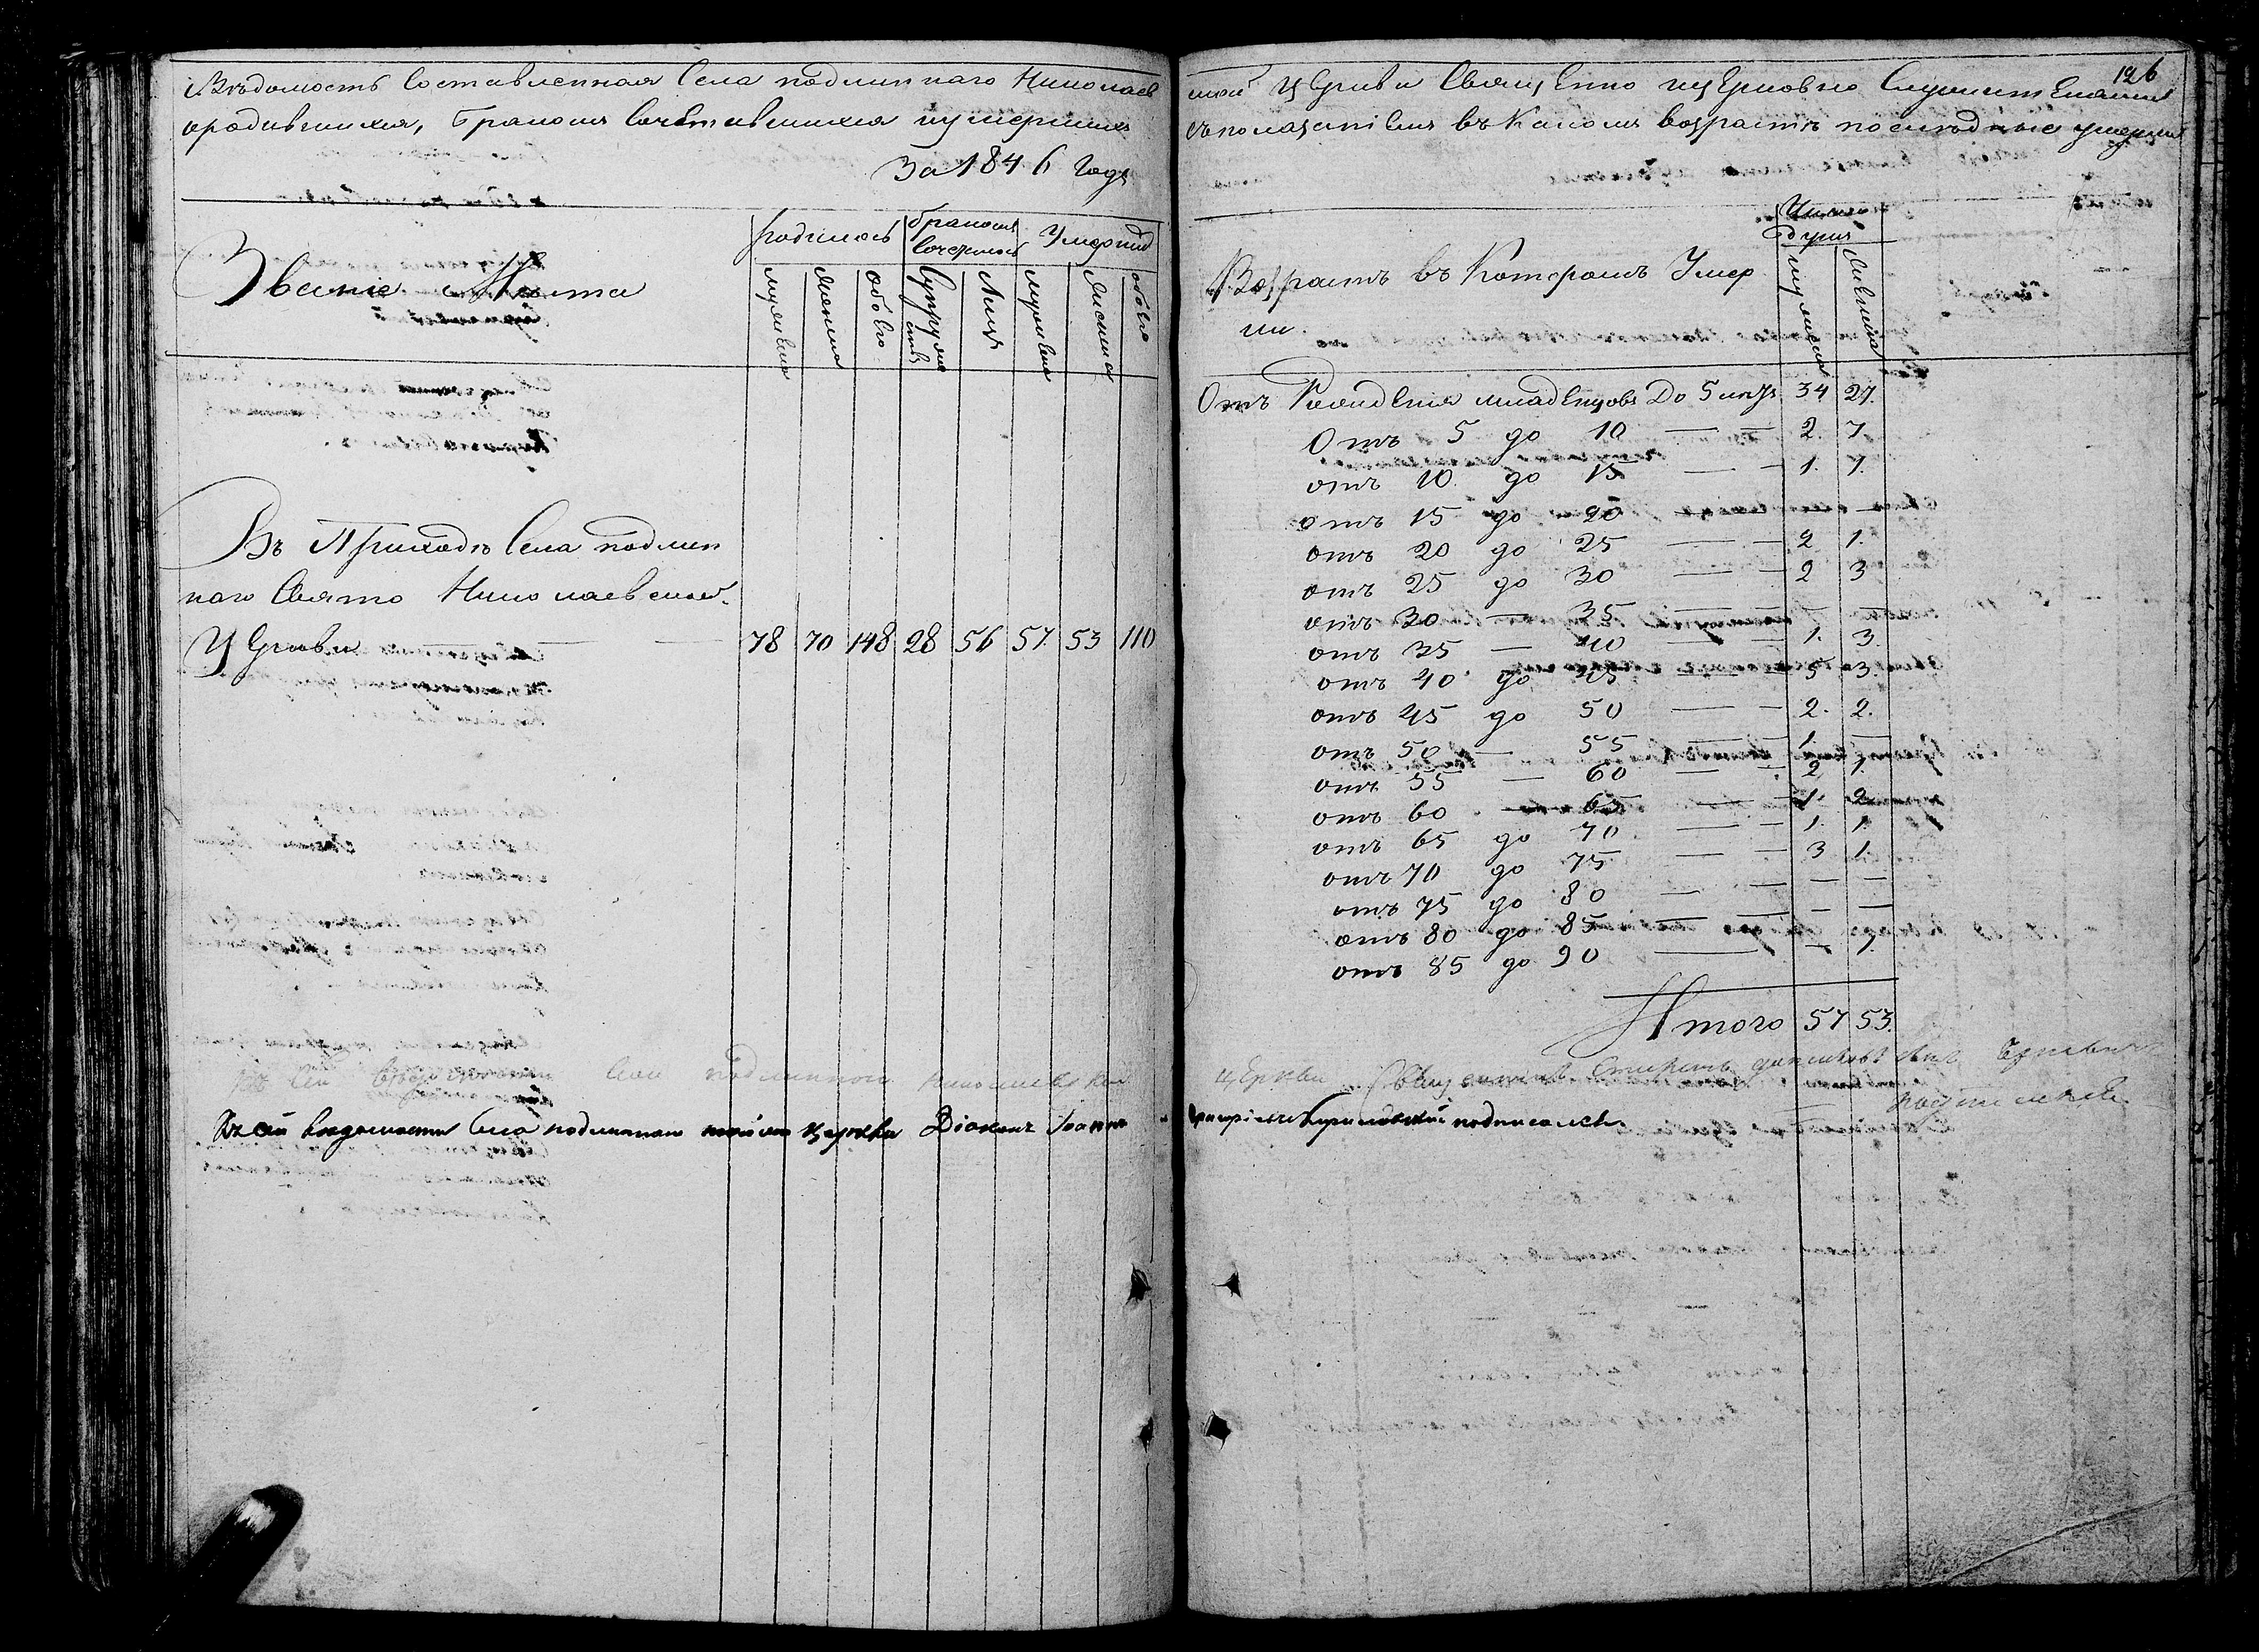 126
Вѣдомость Составленная Села подлиннаго Николаев
ской Церкви Священно церковно Служителями
ородившихся, бракомъ Сочетавшихся иумершихъ
съпоказаніемъ въ какомъ возрастѣ последные умерли
За 1846 Годъ
Званіе Места
родилось
бракомъ Сочеталось
Умерши
мужеска
женска
обоего
Супружествъ
Лицъ
мужеска
женска
обоего
Въ Приходѣ Села подлин
наго Свято Николаевской
Церкви 78 70 148 28 56 57. 53 110
Возрастъ въ Которомъ Умер
ли
Число душъ
мужеска
женска
Отъ Рожденія младенцовъ До 5 лѣтъ 34 27.
Отъ 5 до 10 — — 2. 7.
отъ 10 до 15 — — 1. 1.
отъ 15 до 20 — — — —
отъ 20 до 25 — — 2 1.
отъ 25 до 30 — — 2 3
отъ 30 — 35 — — — —
отъ 35 — 40 — — 1. 3.
отъ 40 до 45 — — 5 3.
отъ 45 до 50 — — 2. 2.
отъ 50 — 55 — — 1. —
отъ 55 — 60 — — 2 1.
отъ 60 — 65 — — 1. 2.
отъ 65 до 70 — — 1. 1.
отъ 70 до 75 — — 3 1.
отъ 75 до 80 — — — —
отъ 80 до 85 — — — —
отъ 85 до 90 — — 1.
Итого 57 53.
Къ сей Села подлинной николаевской
Церкви Священникъ
подписался
Къ сей ведомости Села подлиннаго церкви Діаконъ Іоаннъ
подписалсь